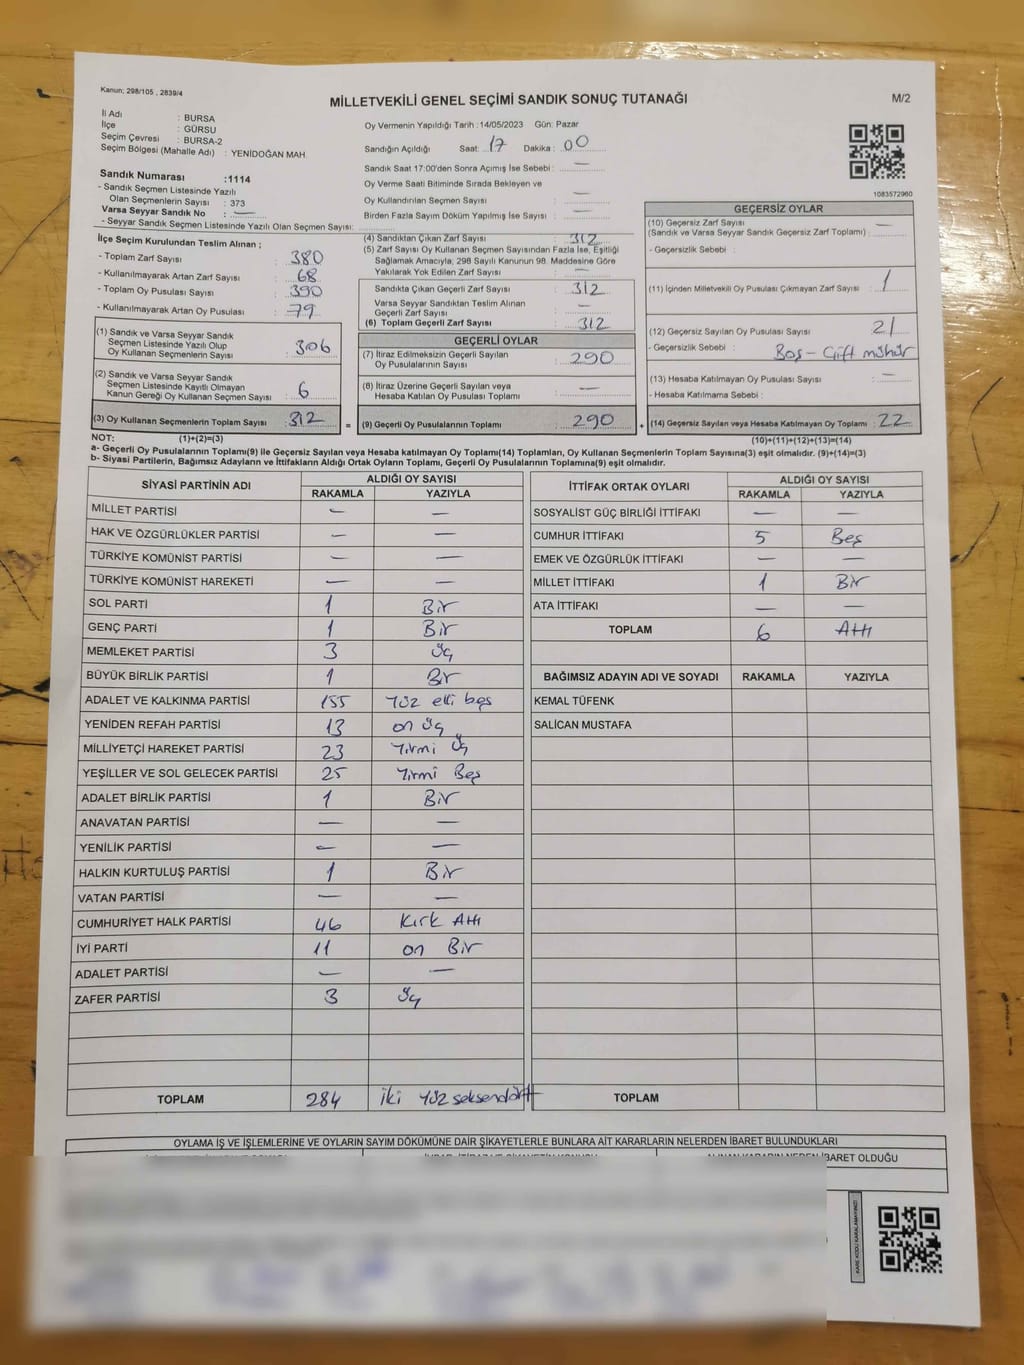 Kanun; 298/105 , 2839/4
MİLLETVEKİLİ GENEL SEÇİMİ SANDIK SONUÇ TUTANAĞI
M/2
İl Adı : BURSA
İlçe : GÜRSU
Seçim Çevresi : BURSA-2
Seçim Bölgesi (Mahalle Adı) : YENİDOĞAN MAH
Sandık Numarası :1114
- Sandık Seçmen Listesinde Yazılı
Olan Seçmenlerin Sayısı : 373
Varsa Seyyar Sandık No : —
- Seyyar Sandık Seçmen Listesinde Yazılı Olan Seçmen Sayısı:
Oy Vermenin Yapıldığı Tarih :14/05/2023 Gün: Pazar
Sandığın Açıldığı Saat: 17 Dakika : 00
Sandık Saat 17:00'den Sonra Açımış İse Sebebi : —
Oy Verme Saati Bitiminde Sırada Bekleyen ve
Oy Kullandırılan Seçmen Sayısı : —
Birden Fazla Sayım Döküm Yapılmış İse Sayısı : —
1083572960
İlçe Seçim Kurulundan Teslim Alınan ;
- Toplam Zarf Sayısı : 380
- Kullanılmayarak Artan Zarf Sayısı : 68
- Toplam Oy Pusulası Sayısı : 390
- Kullanılmayarak Artan Oy Pusulası : 79
(1) Sandık ve Varsa Seyyar Sandık
Seçmen Listesinde Yazılı Olup
Oy Kullanan Seçmenlerin Sayısı : 306
(2) Sandık ve Varsa Seyyar Sandık
Seçmen Listesinde Kayıtlı Olmayan
Kanun Gereği Oy Kullanan Seçmen Sayısı : 6
(3) Oy Kullanan Seçmenlerin Toplam Sayısı : 312
(4) Sandıktan Çıkan Zarf Sayısı : 312
(5) Zarf Sayısı Oy Kullanan Seçmen Sayısından Fazla İse, Eşitliği
Sağlamak Amacıyla; 298 Sayılı Kanunun 98. Maddesine Göre
Yakılarak Yok Edilen Zarf Sayısı : —
Sandıkta Çıkan Geçerli Zarf Sayısı : 312
Varsa Seyyar Sandıktan Teslim Alınan
Geçerli Zarf Sayısı : —
(6) Toplam Geçerli Zarf Sayısı : 312
GEÇERLİ OYLAR
(7) İtiraz Edilmeksizin Geçerli Sayılan
Oy Pusulalarının Sayısı : 290
(8) İtiraz Üzerine Geçerli Sayılan veya
Hesaba Katılan Oy Pusulası Toplamı : —
= (9) Geçerli Oy Pusulalarının Toplamı : 290
GEÇERSİZ OYLAR
(10) Geçersiz Zarf Sayısı
(Sandık ve Varsa Seyyar Sandık Geçersiz Zarf Toplamı) : —
- Geçersizlik Sebebi :
(11) İçinden Milletvekili Oy Pusulası Çıkmayan Zarf Sayısı : 1
(12) Geçersiz Sayılan Oy Pusulası Sayısı : 21
- Geçersizlik Sebebi : Boş - Çift mühür
(13) Hesaba Katılmayan Oy Pusulası Sayısı : —
- Hesaba Katılmama Sebebi :
+ (14) Geçersiz Sayılan veya Hesaba Katılmayan Oy Toplamı : 22
NOT: (1)+(2)=(3)
(10)+(11)+(12)+(13)=(14)
a- Geçerli Oy Pusulalarının Toplamı(9) ile Geçersiz Sayılan veya Hesaba katılmayan Oy Toplamı(14) Toplamları, Oy Kullanan Seçmenlerin Toplam Sayısına(3) eşit olmalıdır. (9)+(14)=(3)
b- Siyasi Partilerin, Bağımsız Adayların ve İttifakların Aldığı Ortak Oyların Toplamı, Geçerli Oy Pusulalarının Toplamına(9) eşit olmalıdır.
SİYASİ PARTİNİN ADI ALDIĞI OY SAYISI
RAKAMLA YAZIYLA
MİLLET PARTİSİ — —
HAK VE ÖZGÜRLÜKLER PARTİSİ — —
TÜRKİYE KOMÜNİST PARTİSİ — —
TÜRKİYE KOMÜNİST HAREKETİ — —
SOL PARTİ 1 Bir
GENÇ PARTİ 1 Bir
MEMLEKET PARTİSİ 3 Üç
BÜYÜK BİRLİK PARTİSİ 1 Bir
ADALET VE KALKINMA PARTİSİ 155 Yüz elli beş
YENİDEN REFAH PARTİSİ 13 on üç
MİLLİYETÇİ HAREKET PARTİSİ 23 Yirmi Üç
YEŞİLLER VE SOL GELECEK PARTİSİ 25 Yirmi Beş
ADALET BİRLİK PARTİSİ 1 Bir
ANAVATAN PARTİSİ — —
YENİLİK PARTİSİ — —
HALKIN KURTULUŞ PARTİSİ 1 Bir
VATAN PARTİSİ — —
CUMHURİYET HALK PARTİSİ 46 Kırk Altı
İYİ PARTİ 11 on Bir
ADALET PARTİSİ — —
ZAFER PARTİSİ 3 Üç
TOPLAM 284 iki yüz seksendört
İTTİFAK ORTAK OYLARI ALDIĞI OY SAYISI
RAKAMLA YAZIYLA
SOSYALİST GÜÇ BİRLİĞİ İTTİFAKI — —
CUMHUR İTTİFAKI 5 Beş
EMEK VE ÖZGÜRLÜK İTTİFAKI — —
MİLLET İTTİFAKI 1 Bir
ATA İTTİFAKI — —
TOPLAM 6 Altı
BAĞIMSIZ ADAYIN ADI VE SOYADI RAKAMLA YAZIYLA
KEMAL TÜFENK
SALİCAN MUSTAFA
TOPLAM
OYLAMA İŞ VE İŞLEMLERİNE VE OYLARIN SAYIM DÖKÜMÜNE DAİR ŞİKAYETLERLE BUNLARA AİT KARARLARIN NELERDEN İBARET BULUNDUKLARI
ALINAN KARARIN NEDEN İBARET OLDUĞU
KARE KODU KARALAMAYINIZ!